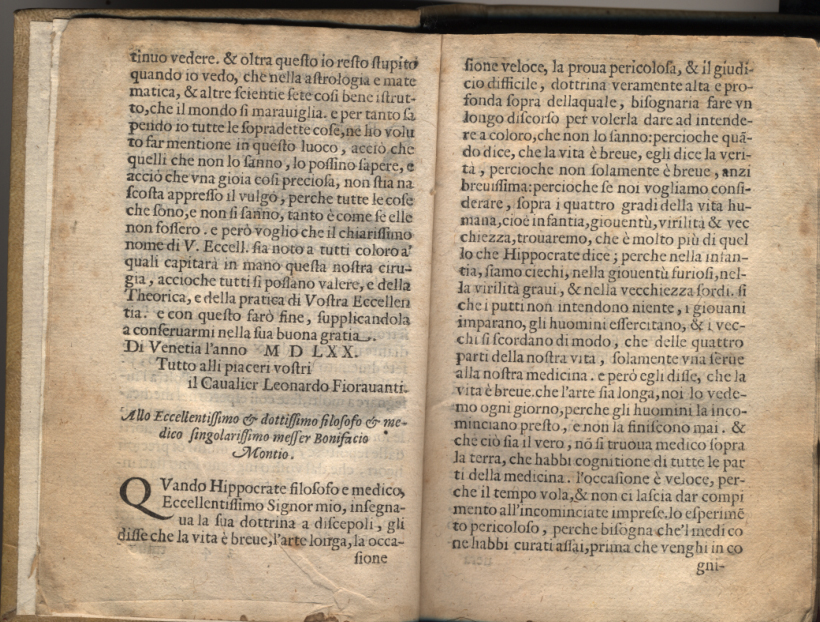 tinuo vedere. & oltra questo io resto stupito
quando io vedo, che nella astrologia e mate
matica, & altre scientie sete cosi bene istrut-
to, che il mondo si marauiglia. e per tanto sa
pendo io tutte le sopradette cose, ne ho volu
to far mentione in questo luoco, acciò che
quelli che non lo sanno, lo possino sapere, e
acciò che vna gioia cosi preciosa, non stia na
scosta appresso il vulgo, perche tutte le cose
che sono, e non si sanno, tanto è come se elle
non fossero. e però voglio che il chiarissimo
nome di V. Eccell. sia noto a tutti coloro a'
quali capitarà in mano questa nostra ciru-
gia, accioche tutti si possano valere, e della
Theorica, e della pratica di Vostra Eccellen
tia. e con questo farò fine, supplicandola
a conseruarmi nella sua buona gratia.
Di Venetia l'anno M D LXX.
Tutto alli piaceri vostri
il Caualier Leonardo Fiorauanti.
Allo Eccellentissimo & dottissimo filosofo & me-
dico singolarissimo messer Bonifacio
Montio.
QVando Hippocrate filosofo e medico,
Eccellentissimo Signor mio, insegna-
ua la sua dottrina a discepoli, gli
disse che la vita è breue, l'arte longa, la occa-
sione
sione veloce, la proua pericolosa, & il giudi-
cio difficile, dottrina veramente alta e pro-
fonda sopra dellaquale, bisognaria fare vn
longo discorso per volerla dare ad intende-
re a coloro, che non lo sanno: percioche quā-
do dice, che la vita è breue, egli dice la veri-
tà, percioche non solamente è breue, anzi
breuissima: percioche se noi vogliamo consi-
derare, sopra i quattro gradi della vita hu-
mana, cioè infantia, giouentù, virilità & vec
chiezza, trouaremo, che è molto più di quel
lo che Hippocrate dice; perche nella infan-
tia, siamo ciechi, nella giouentù furiosi, nel-
la virilità graui, & nella vecchiezza sordi. si
che i putti non intendono niente, i giouani
imparano, gli huomini essercitano, & i vec-
chi si scordano di modo, che delle quattro
parti della nostra vita, solamente vna serue
alla nostra medicina. e però egli disse, che la
vita è breue. che l'arte sia longa, noi lo vede-
mo ogni giorno, perche gli huomini la inco-
minciano presto, e non la finiscono mai. &
che ciò sia il vero, nō si truoua medico sopra
la terra, che habbi cognitione di tutte le par
ti della medicina. l'occasione è veloce, per-
che il tempo vola, & non ci lascia dar compi
mento all'incominciate imprese. lo esperimē
to pericoloso, perche bisogna che'l medico
ne habbi curati assai, prima che venghi in co
gni-